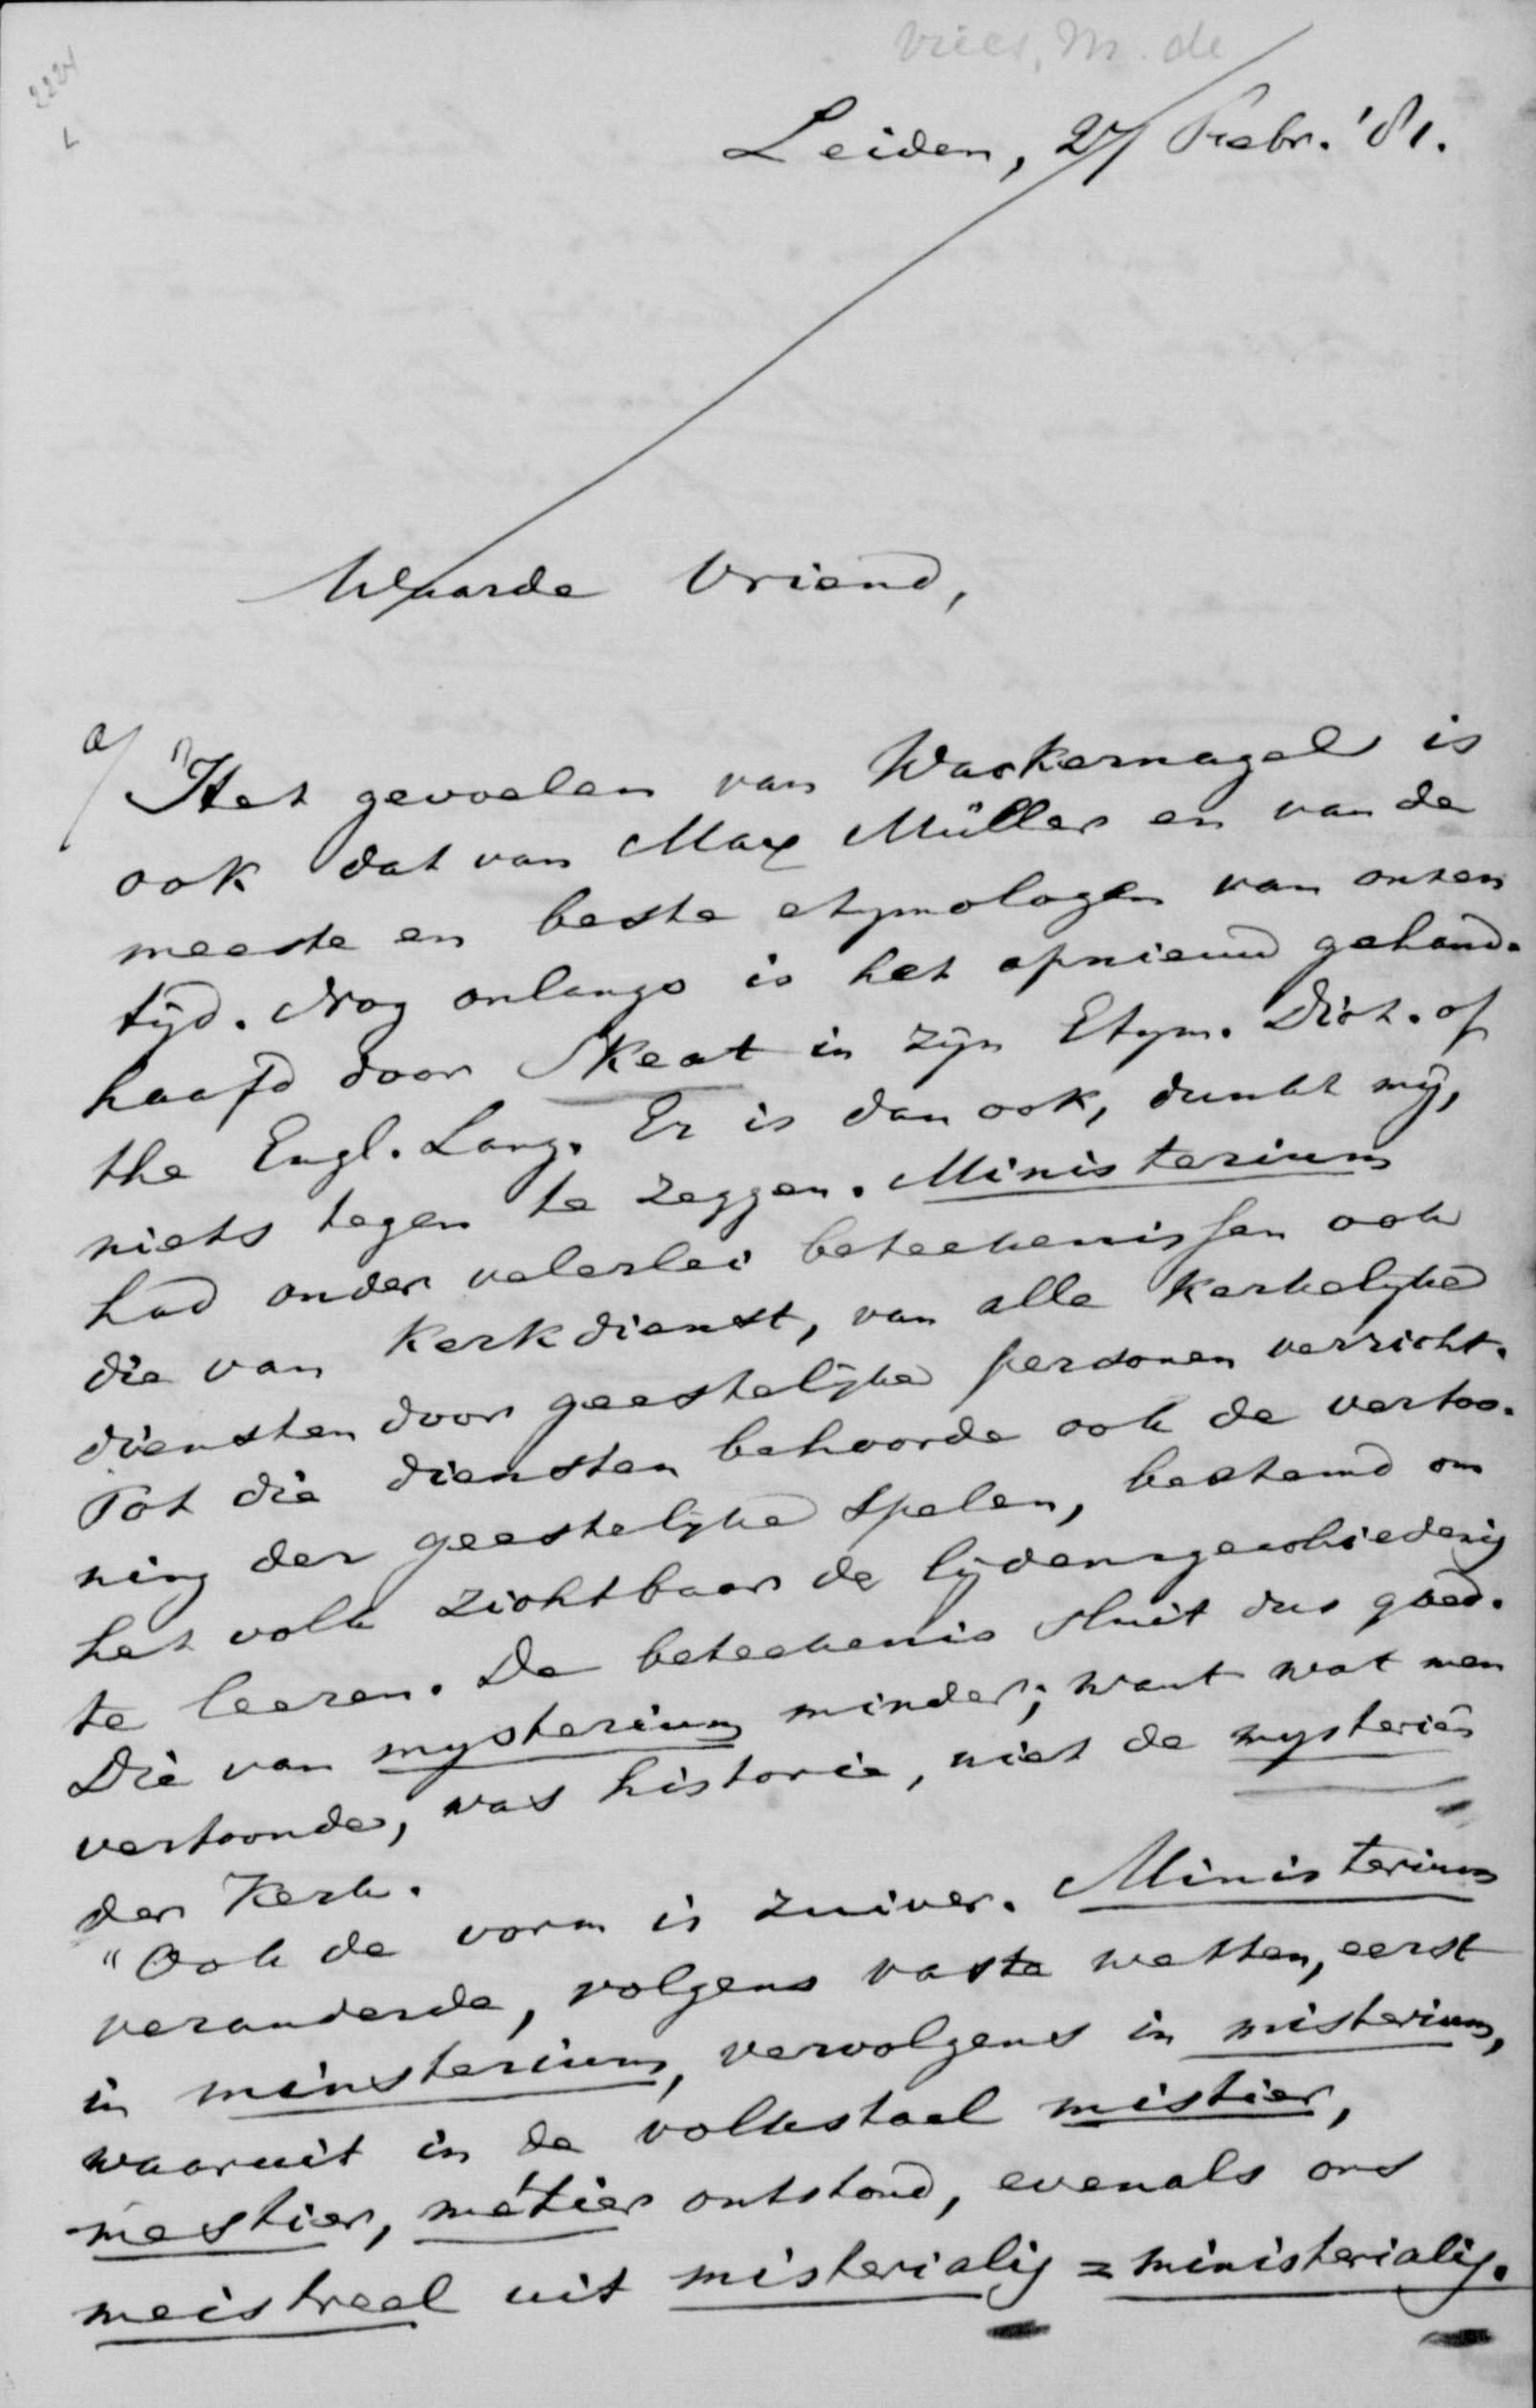 Vries, M. de
2224
L
Leiden, 27 Febr. '81.
Waarde Vriend,
a/ "Het gevoelen van Wackernagel is
ook dat van Max Müller en van de
meeste en beste etymologen van onzen
tijd. Nog onlangs is het opnieuw gehand-
haafd door Skeat in zijn Etym. Dict. of
the Engl. Lang. Er is dan ook, dunkt mij,
niets tegen te zeggen. Ministerium
had onder velerlei beteekenissen ook
die van kerkdienst, van alle kerkelijke
diensten door geestelijke personen verricht.
Tot die diensten behoorde ook de vertoo-
ning der geestelijke spelen, bestemd om
het volk zichtbaar de lijdensgeschiedenis
te leeren. De beteekenis sluit dus goed.
Die van mysterium minder; want wat men
vertoonde, was historie, niet de mysteriën
der Kerk.
"Ook de vorm is zuiver. Ministerium
veranderde, volgens vaste wetten, eerst
in minsterium, vervolgens in misterium,
waaruit in de volkstaal mistier,
mestier, métier ontstond, evenals ons
meistreel uit misterialis = ministerialis.